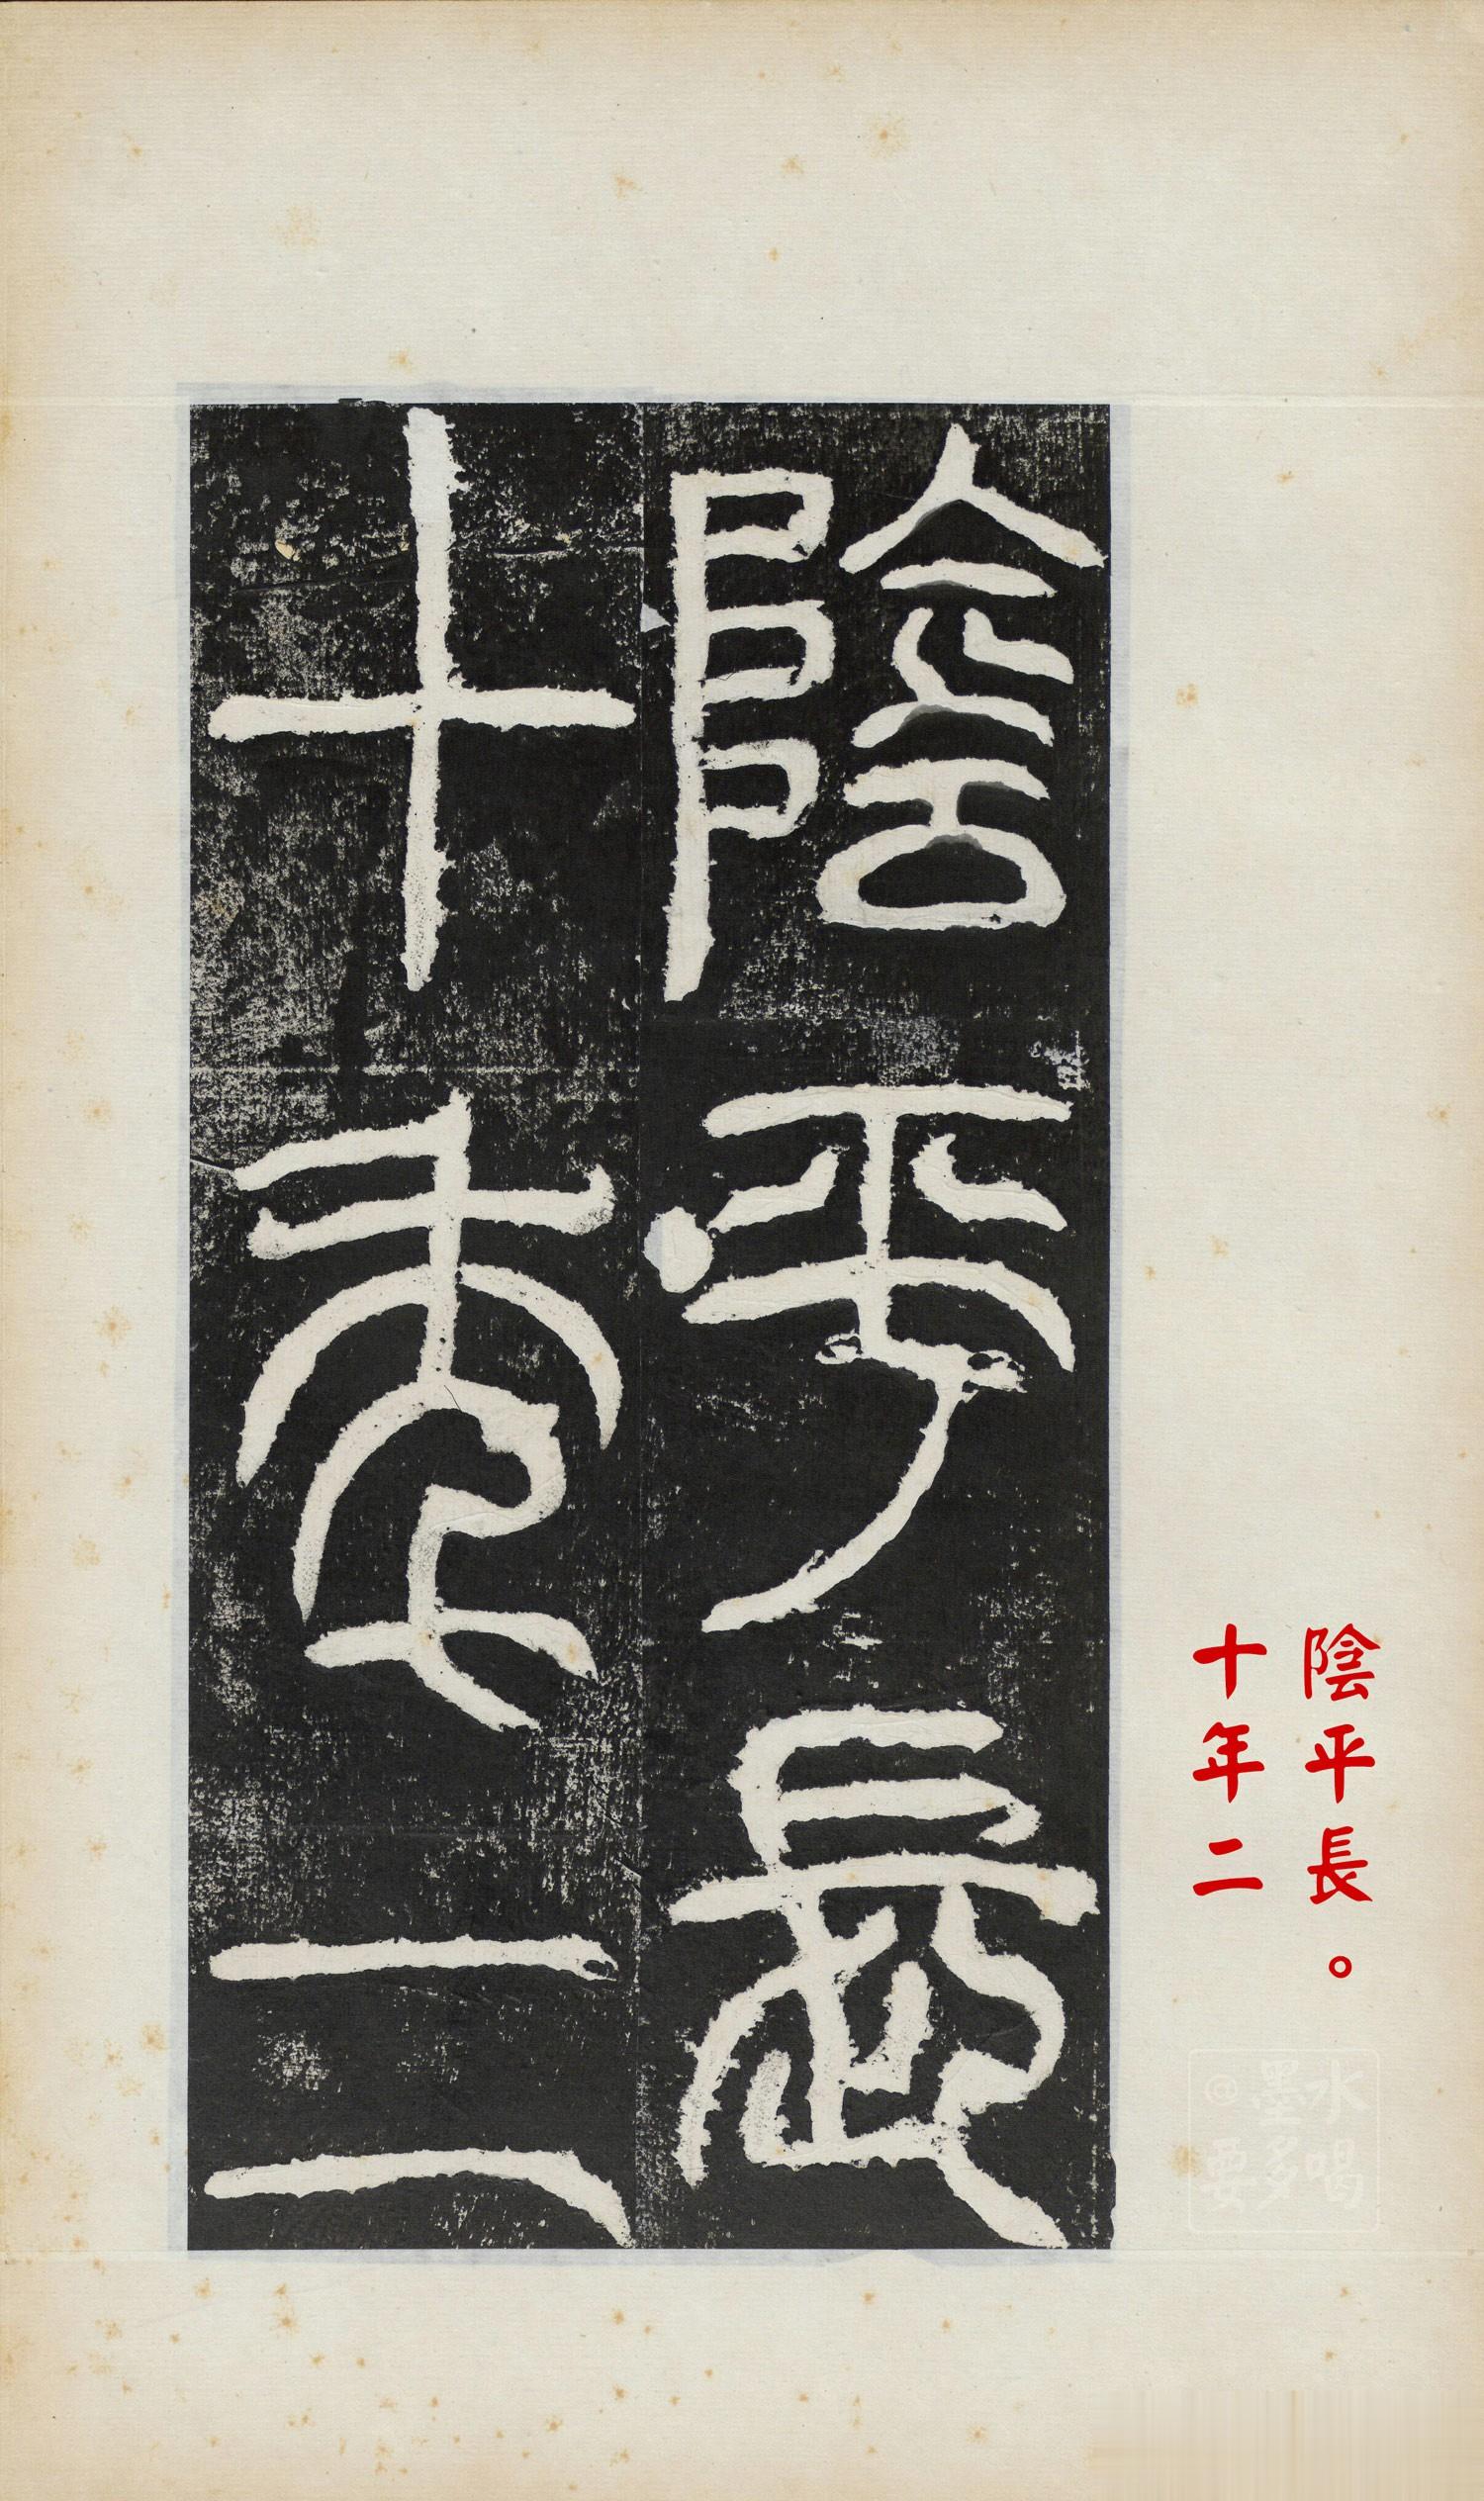 陰平長
十年二
陰平長。
十年二
@墨水
要多喝